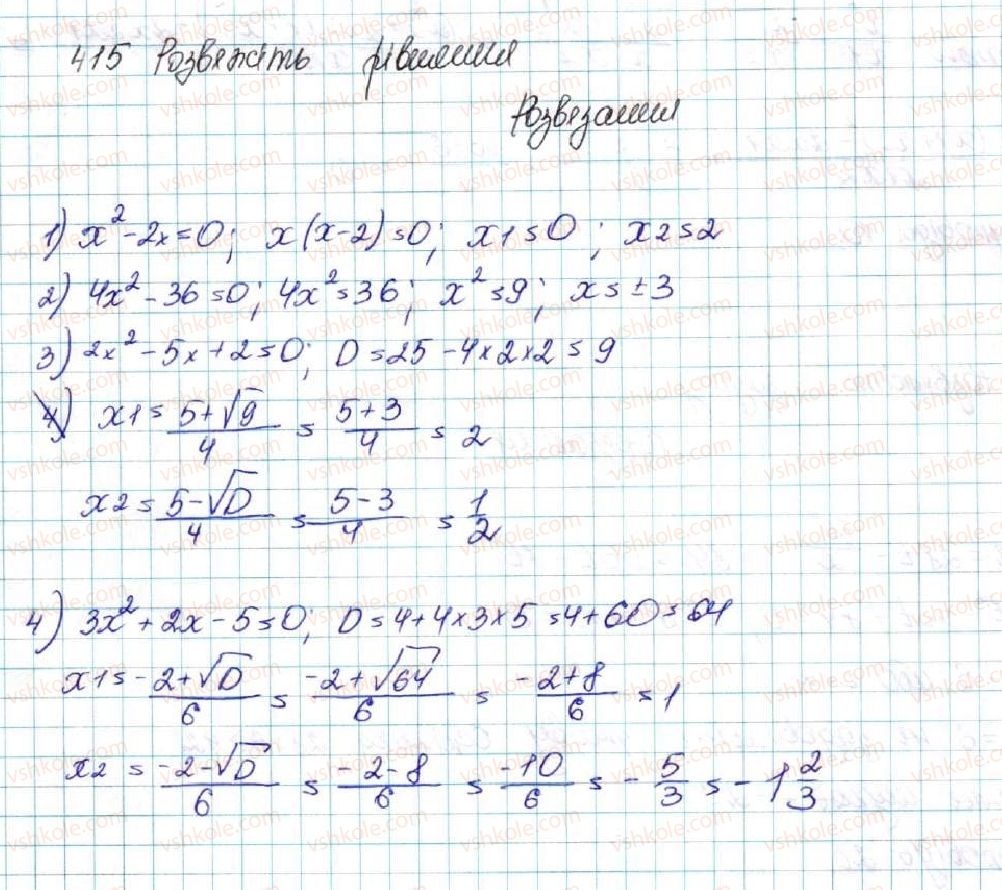 415 Розвяжіть рівняння
Розвязання
1) x² - 2x = 0; x(x-2) = 0; x1 = 0; x2 = 2
2) 4x² - 36 = 0; 4x² = 36; x² = 9; x = ±3
3) 2x² - 5x + 2 = 0; D = 25 - 4×2×2 = 9
x1 = (5+√9)/4 = (5+3)/4 = 2
x2 = (5-√D)/4 = (5-3)/4 = 1/2
4) 3x² + 2x - 5 = 0; D = 4+4×3×5 = 4+60 = 64
x1 = (-2+√D)/6 = (-2+√64)/6 = (-2+8)/6 = 1
x2 = (-2-√D)/6 = (-2-8)/6 = -10/6 = -5/3 = -1 2/3
vshkole.com